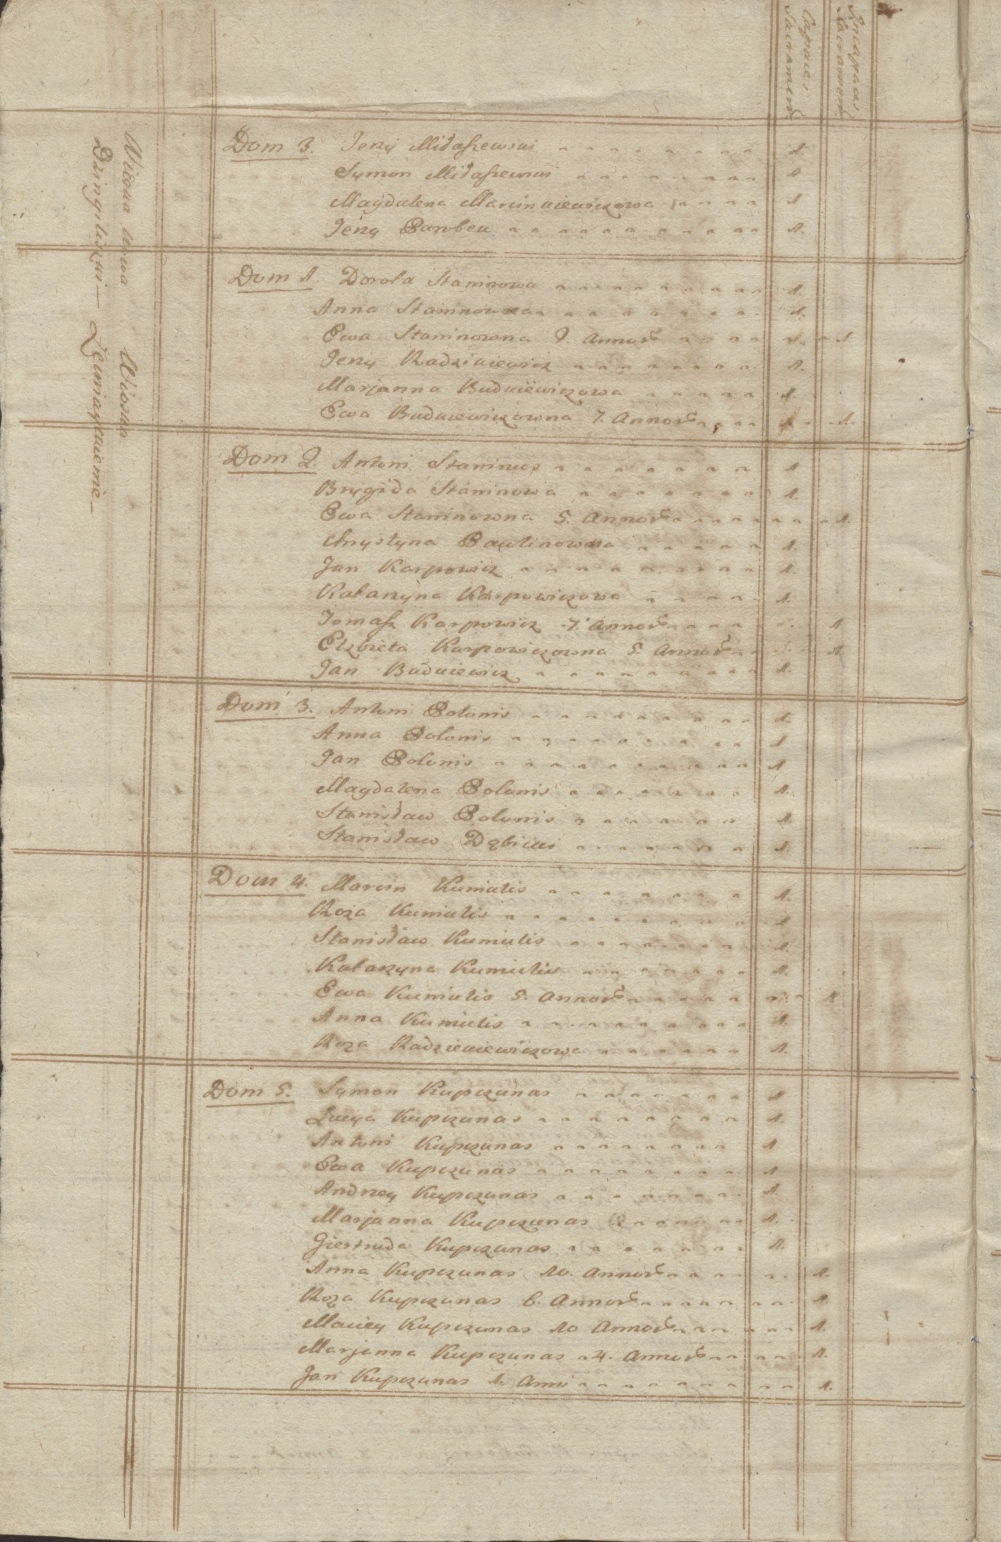 Capaces Sacramen
Incapaces Sacramen
Dzingiliszki — Ziemiaństwienie
Dom 3. Jerzy Miłaszewski 1
Symon Miłaszewski 1
Magdalena Marcinkiewiczowa 1
Jerzy Parobek 1.
Dom 1. Dorota Staninowa 1.
Anna Staninowna 1.
Ewa Staninowna 9 Annor 1
Jerzy Radzikiewicz 1.
Marjanna Budkiewiczowa 1.
Ewa Budkiewiczowna 7. Annor 1.
Dom 2. Antoni Staninus 1
Brygida Staninowa 1.
Ewa Staninowna 5. Annor 1.
Chrystyna 1.
Jan Karpowicz 1.
Katarzyna Karpowiczowa 1.
Tomasz Karpowicz 7 Annor 1
Elzbieta Karpowiczowna 5 Annor 1
Jan Budkiewicz 1.
Dom 3. Antoni Polonis 1.
Anna Polonis 1
Jan Polonis 1
Magdalena Polonis 1.
Stanisław Polonis 1
Stanisław Dębicki 1.
Dom 4. Marcin Kumutis 1.
Roza Kumutis 1
Stanisław Kumutis 1.
Katarzyna Kumutis 1.
Ewa Kumutis 5. Annor 1
Anna Kumutis 1.
Roza Radzikiewiczowa 1.
Dom 5. Symon Kupczunas 1
Łucya Kupczunas 1.
Antoni Kupczunas 1
Ewa Kupczunas 1
Andrzey Kupczunas 1
Marjanna Kupczunas 1.
Giertruda Kupczunas 1.
Anna Kupczunas 10. Annor 1.
Roza Kupczunas 6. Annor 1
Maciey Kupczunas 10 Annor 1.
Marjanna Kupczunas 4. Annor 1.
Jan Kupczunas 1. Anni 1.